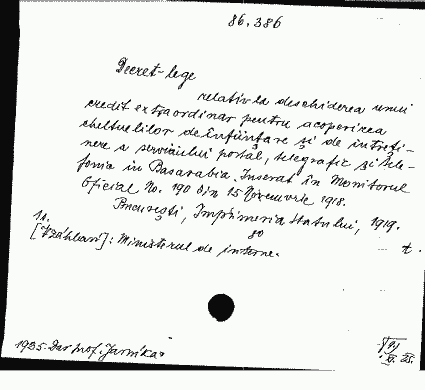 86.386
Decret-lege
relativ la deschiderea unui
credit extraordinar pentru acoperirea
cheltuelilor de înființare și de întreți-
nere a serviciului poștal, telegrafic și tele-
fonic in Basarabia. Inserat în Monitorul
Oficial No. 190 din 15 Noemvrie 1918.
București, Imprimeria Statului, 1919.
8º
1 s.
: Ministerul de interne.
t.
1935. Dar prof. Jarníka